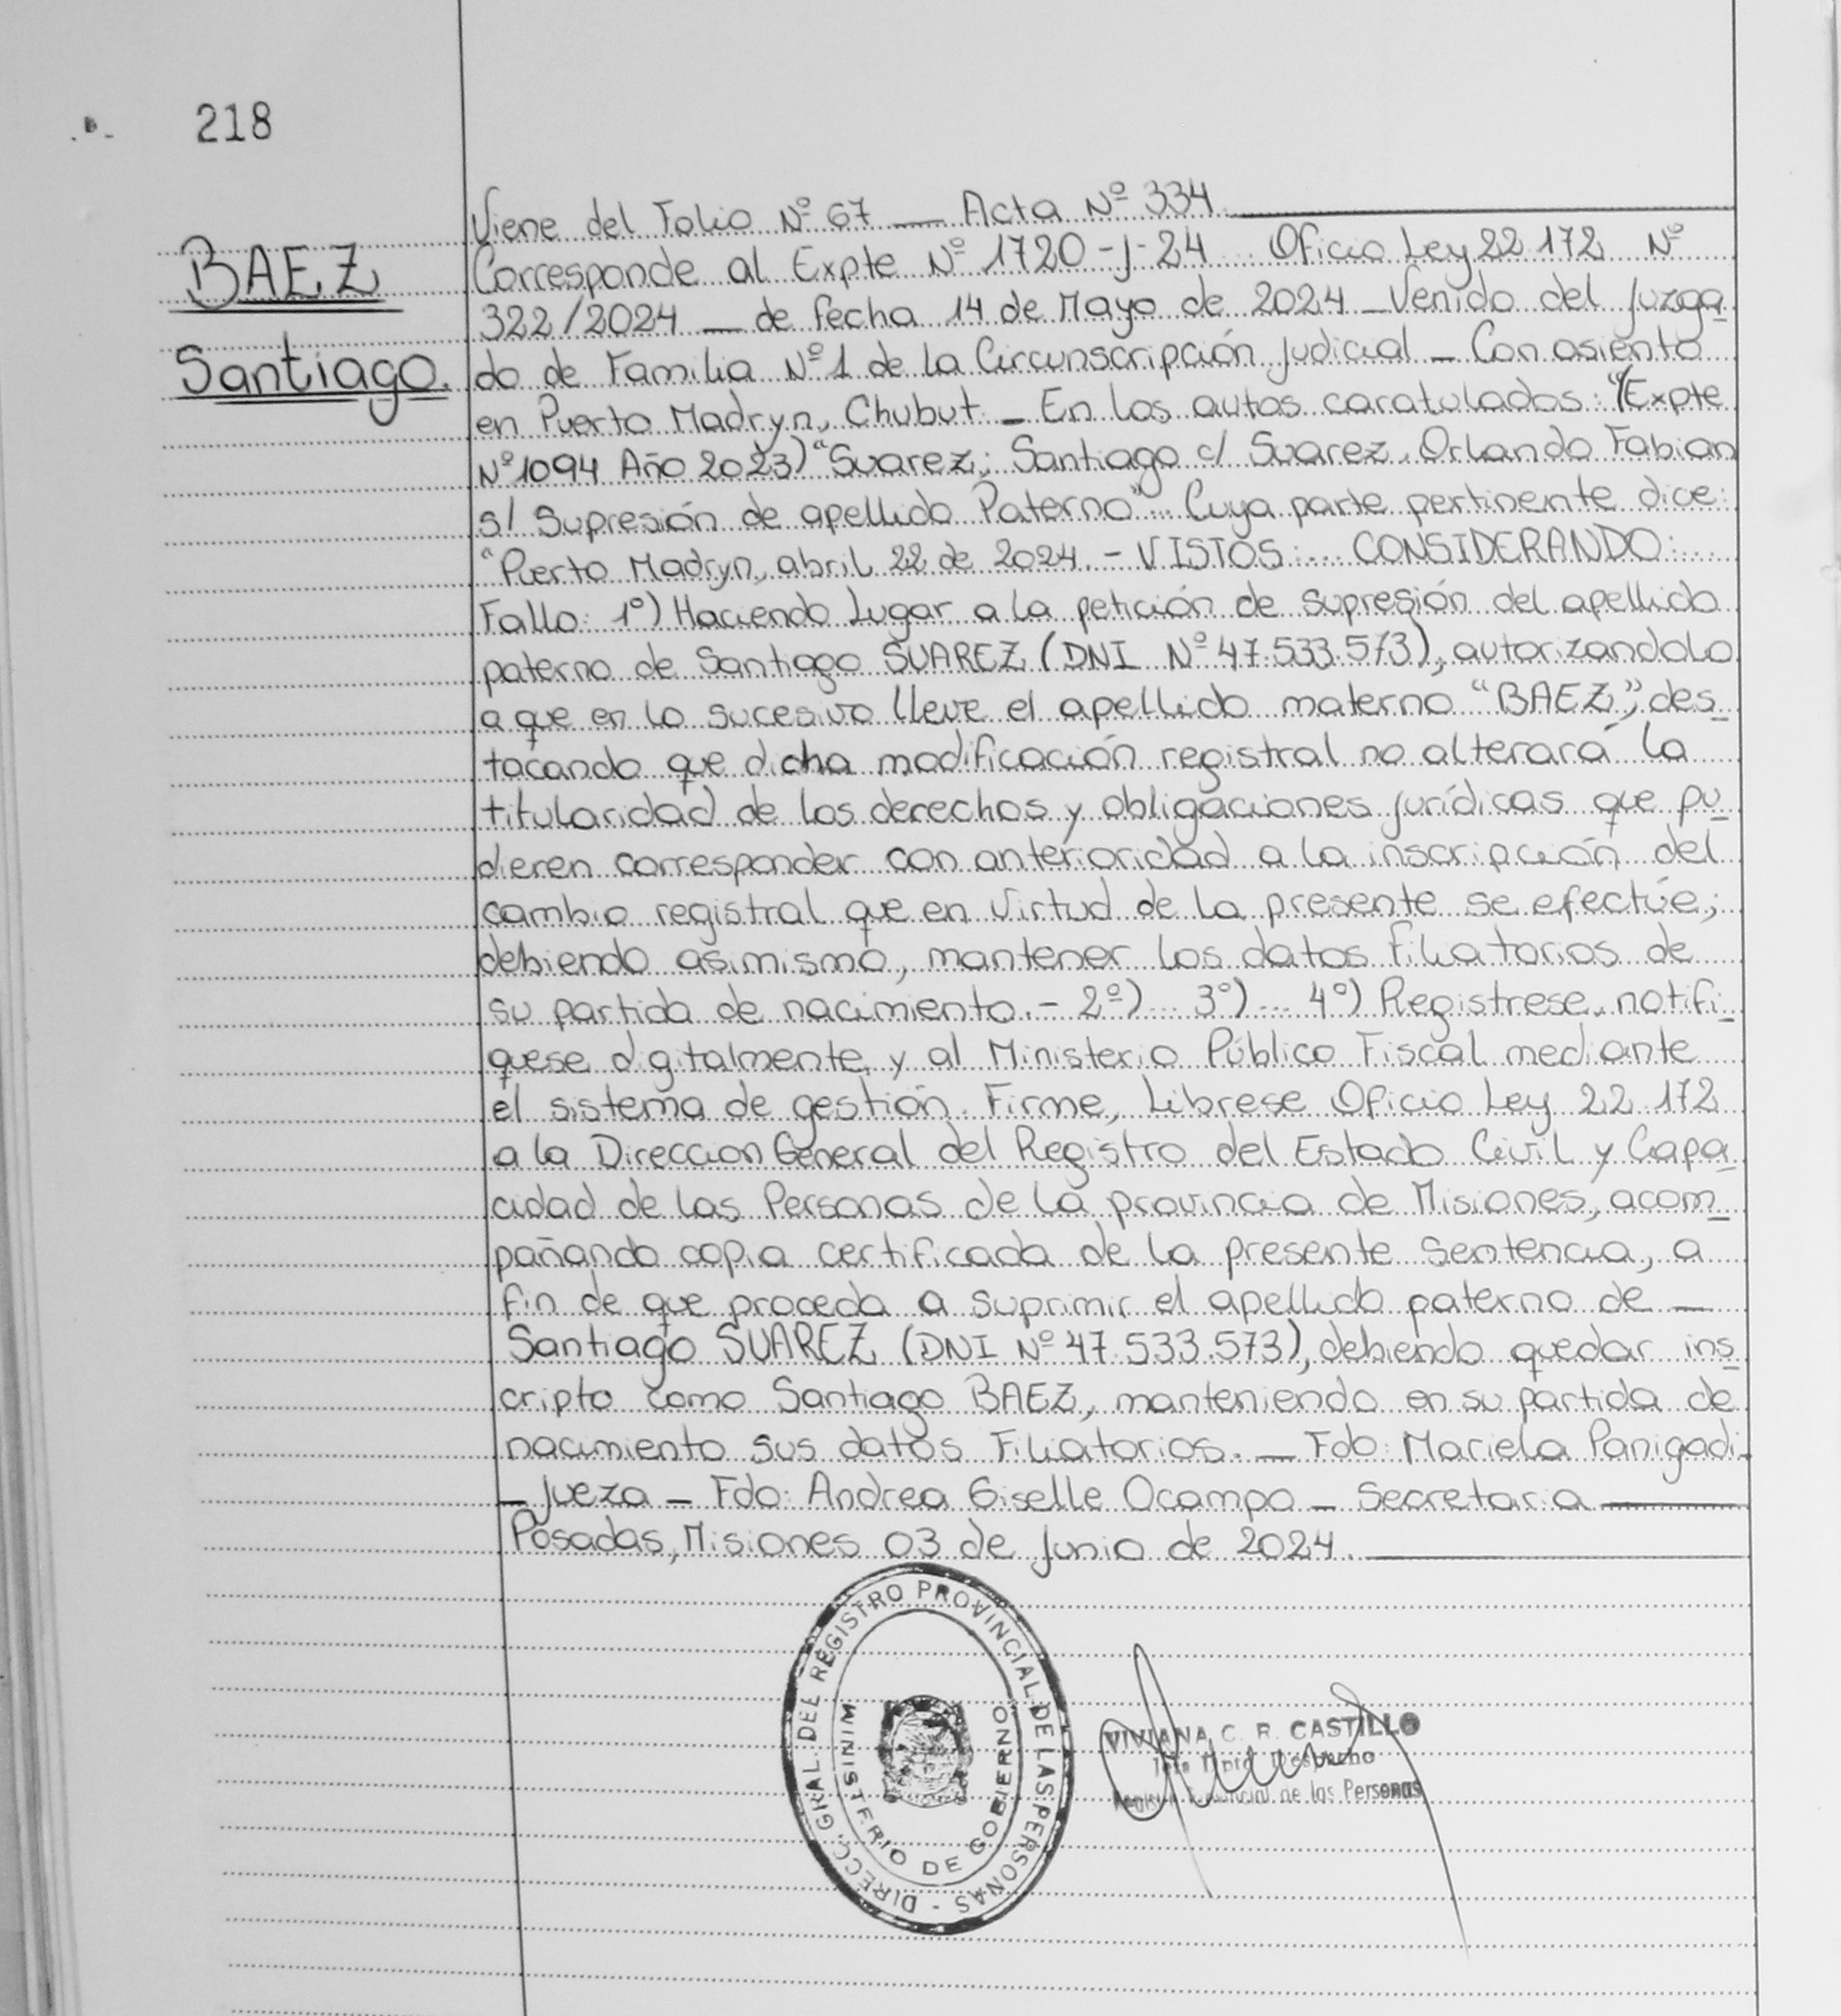 218
BAEZ
Santiago.
Viene del Folio Nº 67 — Acta Nº 334.
Corresponde al Expte Nº 1720-J-24... Oficio Ley 22172 Nº
322/2024 — de fecha 14 de Mayo de 2024 — Venido del Juzga
do de Familia Nº 1 de la Circunscripción Judicial — Con asiento
en Puerto Madryn, Chubut. — En los autos caratulados: "(Expte
Nº 1094 Año 2023) "Suarez; Santiago c/ Suarez, Orlando Fabian
s/ Supresión de apellido Paterno"... Cuya parte pertinente dice:
"Puerto Madryn, abril 22 de 2024. - VISTOS:... CONSIDERANDO:...
Fallo: 1º) Haciendo Lugar a la petición de supresión del apellido
paterno de Santiago SUAREZ (DNI Nº 47.533.573), autorizandolo
a que en lo sucesivo lleve el apellido materno "BAEZ", des
tacando que dicha modificación registral no alterará la
titularidad de los derechos y obligaciones jurídicas que pu
dieren corresponder con anterioridad a la inscripción del
cambio registral que en virtud de la presente se efectúe;
debiendo asimismo, mantener los datos filiatorios de
su partida de nacimiento. - 2º)... 3º)... 4º) Registrese, notifi
quese digitalmente, y al Ministerio Público Fiscal mediante
el sistema de gestión. Firme, Librese Oficio Ley 22.172
a la Direccion General del Registro del Estado Civil y Capa
cidad de las Personas de la provincia de Misiones, acom
pañando copia certificada de la presente Sentencia, a
fin de que proceda a suprimir el apellido paterno de —
Santiago SUAREZ (DNI Nº 47.533.573), debiendo quedar ins
cripto como Santiago BAEZ, manteniendo en su partida de
nacimiento sus datos Filiatorios. — Fdo: Mariela Panigadi
— Jueza — Fdo: Andrea Giselle Ocampo — Secretaria —
Posadas, Misiones 03 de Junio de 2024.
DIRECC. GRAL. DEL REGISTRO PROVINCIAL DE LAS PERSONAS -
MINISTERIO DE GOBIERNO
VIVIANA C. R. CASTILLO
Despacho
Provincial de las Personas